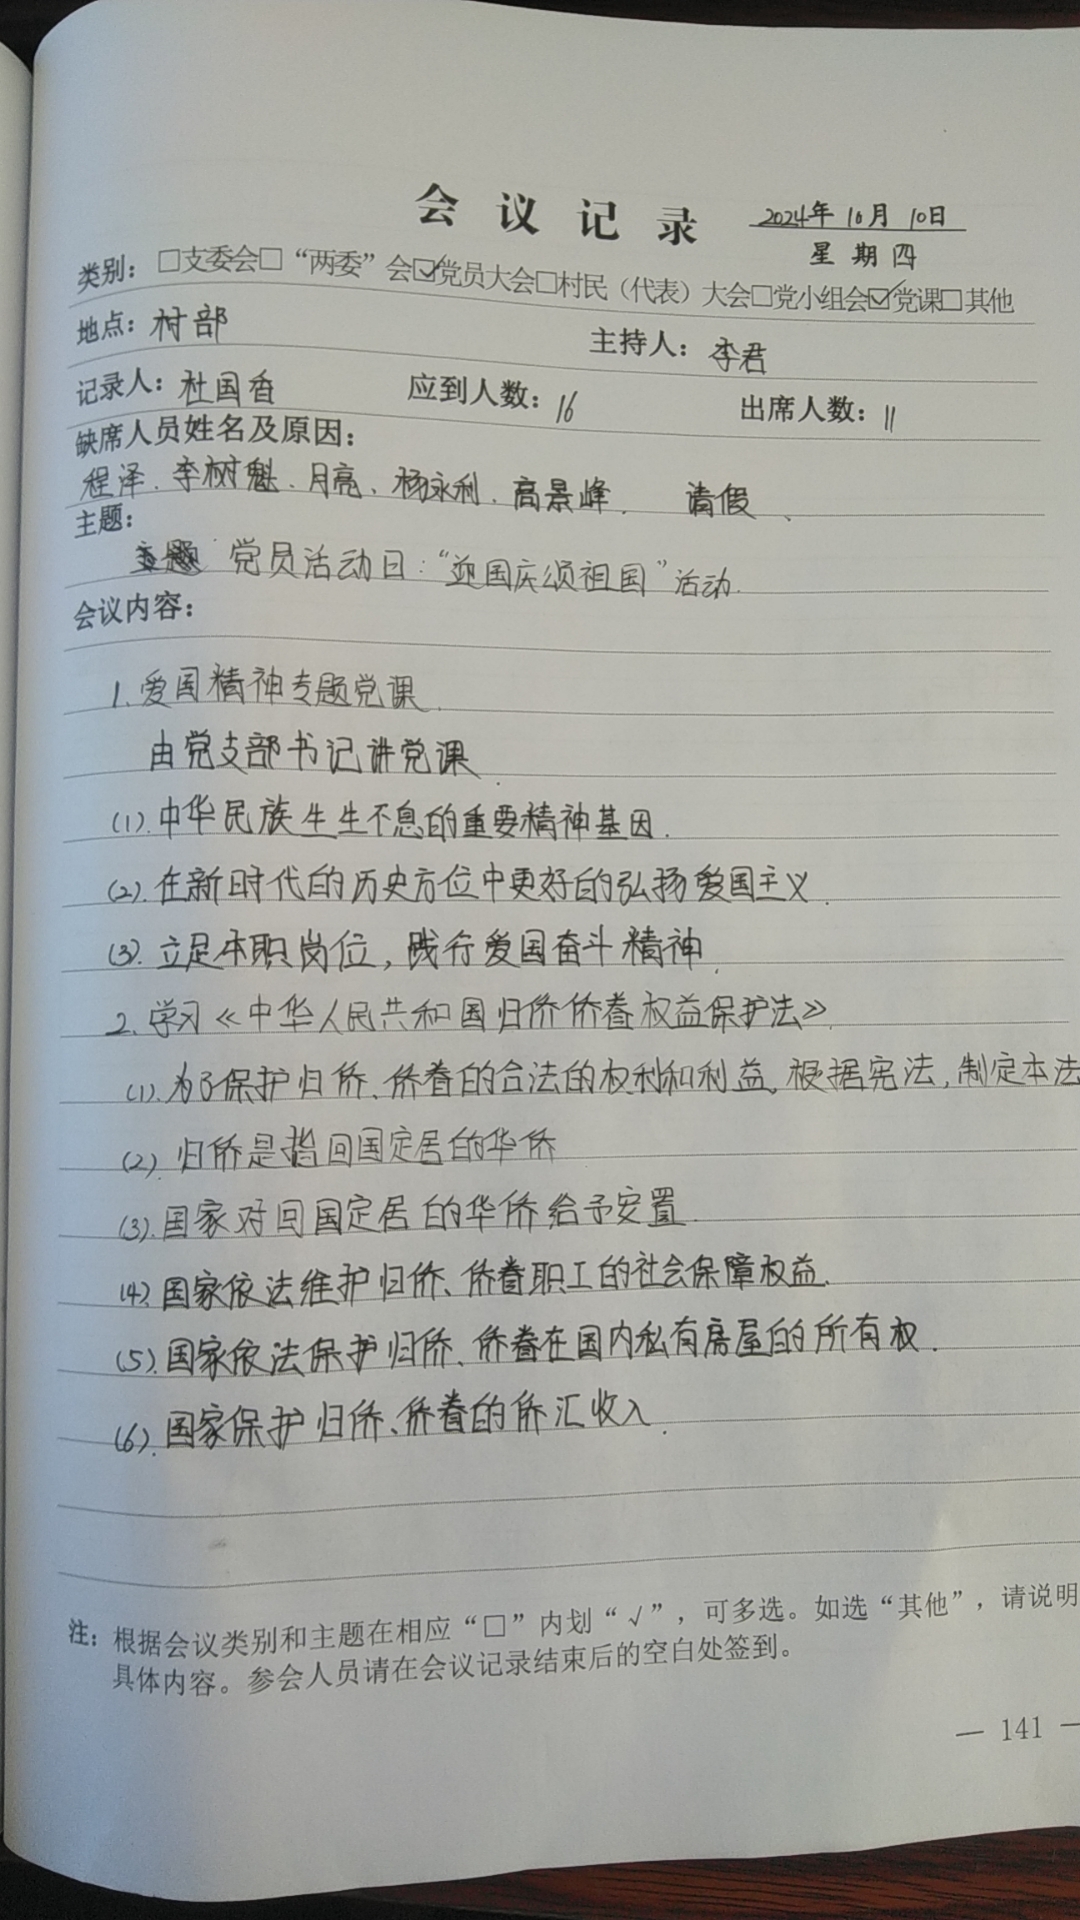 会议记录 2024年10月10日
星期四
类别：□支委会□“两委”会☑党员大会□村民（代表）大会□党小组会☑党课□其他
地点：村部 主持人：李君
记录人：杜国香 应到人数：16 出席人数：11
缺席人员姓名及原因：
程泽、李树魁、月亮、杨永利、高景峰. 请假、
主题：
党员活动日：“迎国庆颂祖国”活动.
会议内容：
1.爱国精神专题党课.
由党支部书记讲党课.
(1).中华民族生生不息的重要精神基因.
(2).在新时代的历史方位中更好的弘扬爱国主义.
(3).立足本职岗位，践行爱国奋斗精神.
2.学习《中华人民共和国归侨侨眷权益保护法》.
(1).为了保护归侨、侨眷的合法的权利和利益，根据宪法，制定本法
(2).归侨是指回国定居的华侨
(3).国家对回国定居的华侨给予安置.
(4).国家依法维护归侨、侨眷职工的社会保障权益.
(5).国家依法保护归侨、侨眷在国内私有房屋的所有权.
(6).国家保护归侨、侨眷的侨汇收入.
注：根据会议类别和主题在相应“□”内划“√”，可多选。如选“其他”，请说明
具体内容。参会人员请在会议记录结束后的空白处签到。
— 141 —